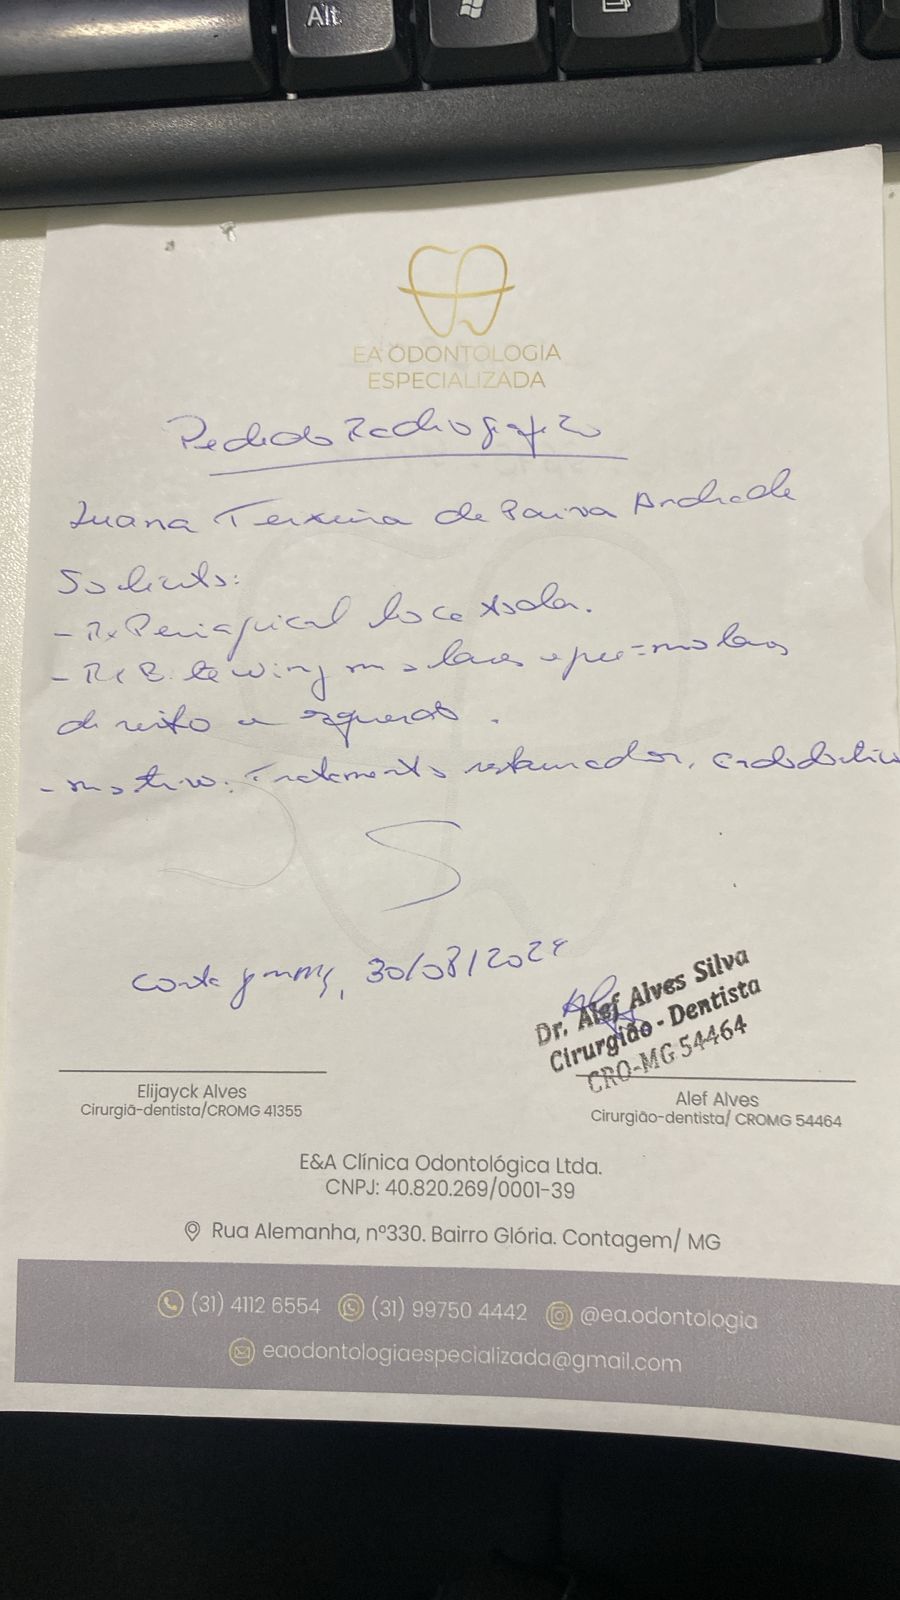 Alt
EA ODONTOLOGIA
ESPECIALIZADA
Pedido Radiográfico
Luana Teixeira de Paiva Andrade
Solicito:
- Rx Periapical boca toda.
- Rx Bitewing molares e pré-molares
direito e esquerdo.
- motivo: Tratamento restaurador, endodontico
Contagem MG, 30/08/2024
Dr. Alef Alves Silva
Cirurgião - Dentista
CRO-MG 54464
Elijayck Alves
Cirurgiã-dentista/CROMG 41355
Alef Alves
Cirurgião-dentista/ CROMG 54464
E&A Clínica Odontológica Ltda.
CNPJ: 40.820.269/0001-39
Rua Alemanha, nº330. Bairro Glória. Contagem/ MG
(31) 4112 6554 (31) 99750 4442 @ea.odontologia
eaodontologiaespecializada@gmail.com